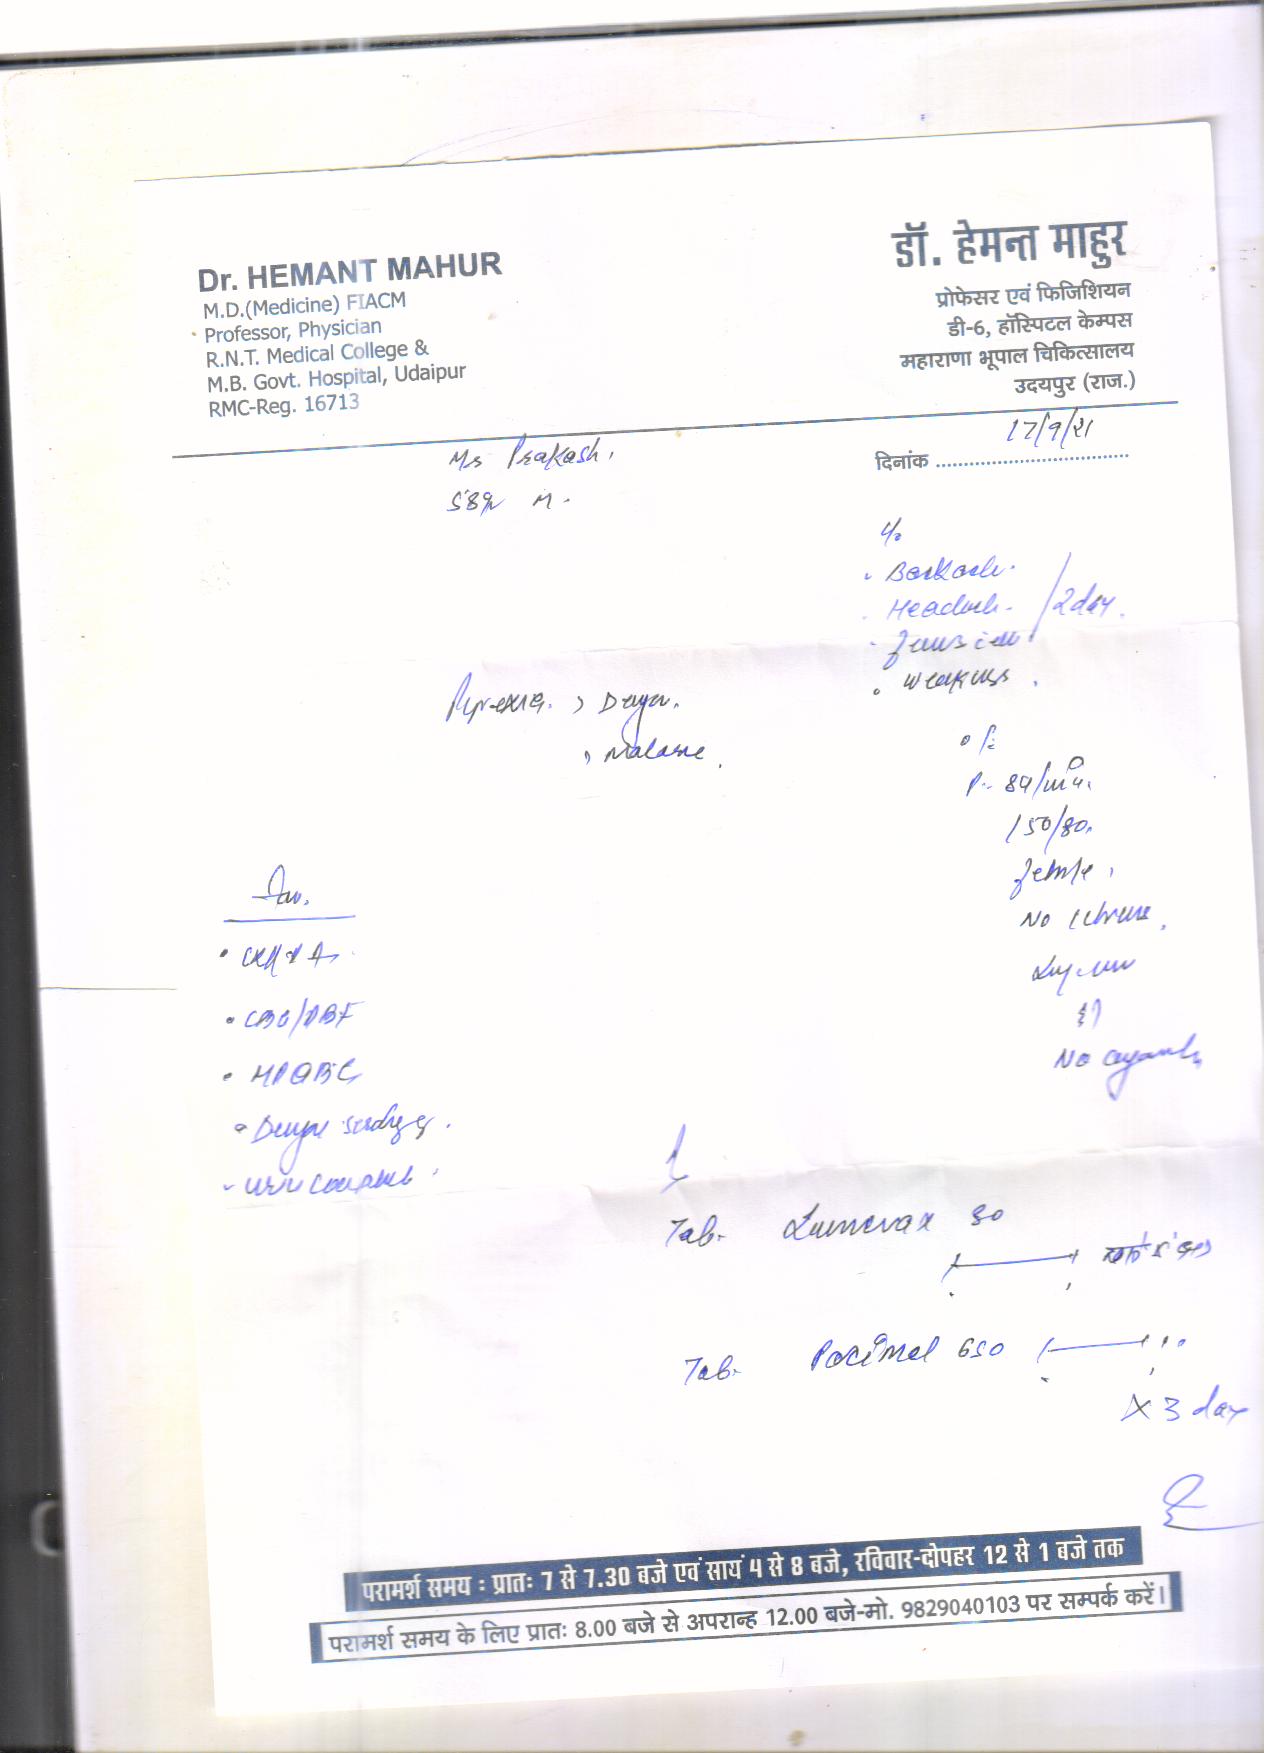 Dr. HEMANT MAHUR
M.D.(Medicine) FIACM
Professor, Physician
R.N.T. Medical College &
M.B. Govt. Hospital, Udaipur
RMC-Reg. 16713
डॉ. हेमन्त माहुर
प्रोफेसर एवं फिजिशियन
डी-6, हॉस्पिटल केम्पस
महाराणा भूपाल चिकित्सालय
उदयपुर (राज.)
दिनांक 17/9/21
Mr Prakash,
M.
c/o
Backache.
Headache. /2 day.
Weakness
Pyrexia. > Dengue.
> Malaria.
o/E
P- 84/min.
150/80.
Febrile,
No
No cyanosis
Inv.
CBC/PBF
MPQBC
Dengue serology.
Urine complete.
Tab. Lumerax 80
Tab. Pacimol 650
X 3 day
परामर्श समय : प्रातः 7 से 7.30 बजे एवं सायं 4 से 8 बजे, रविवार-दोपहर 12 से 1 बजे तक
परामर्श समय के लिए प्रातः 8.00 बजे से अपरान्ह 12.00 बजे-मो. 9829040103 पर सम्पर्क करें।